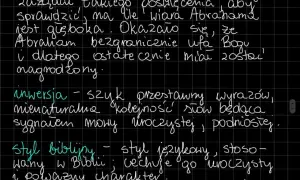 zażądał takiego poświęcenia, aby
sprawdzić, na ile wiara Abrahama
jest głęboka. Okazało się, że
Abraham bezgranicznie ufa Bogu
i dlatego ostatecznie miał zostać
nagrodzony.
inwersja - szyk przestawny wyrazów,
nienaturalna kolejność słów będąca
sygnałem mowy uroczystej, podniosłej.
styl biblijny - styl językowy, stoso-
wany w Biblii; cechuje go uroczysty
i poważny charakter.